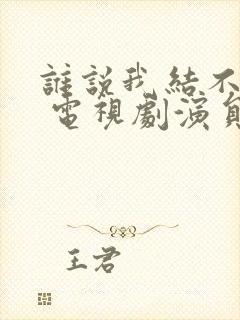 誰說我結不
電視劇演員
王君